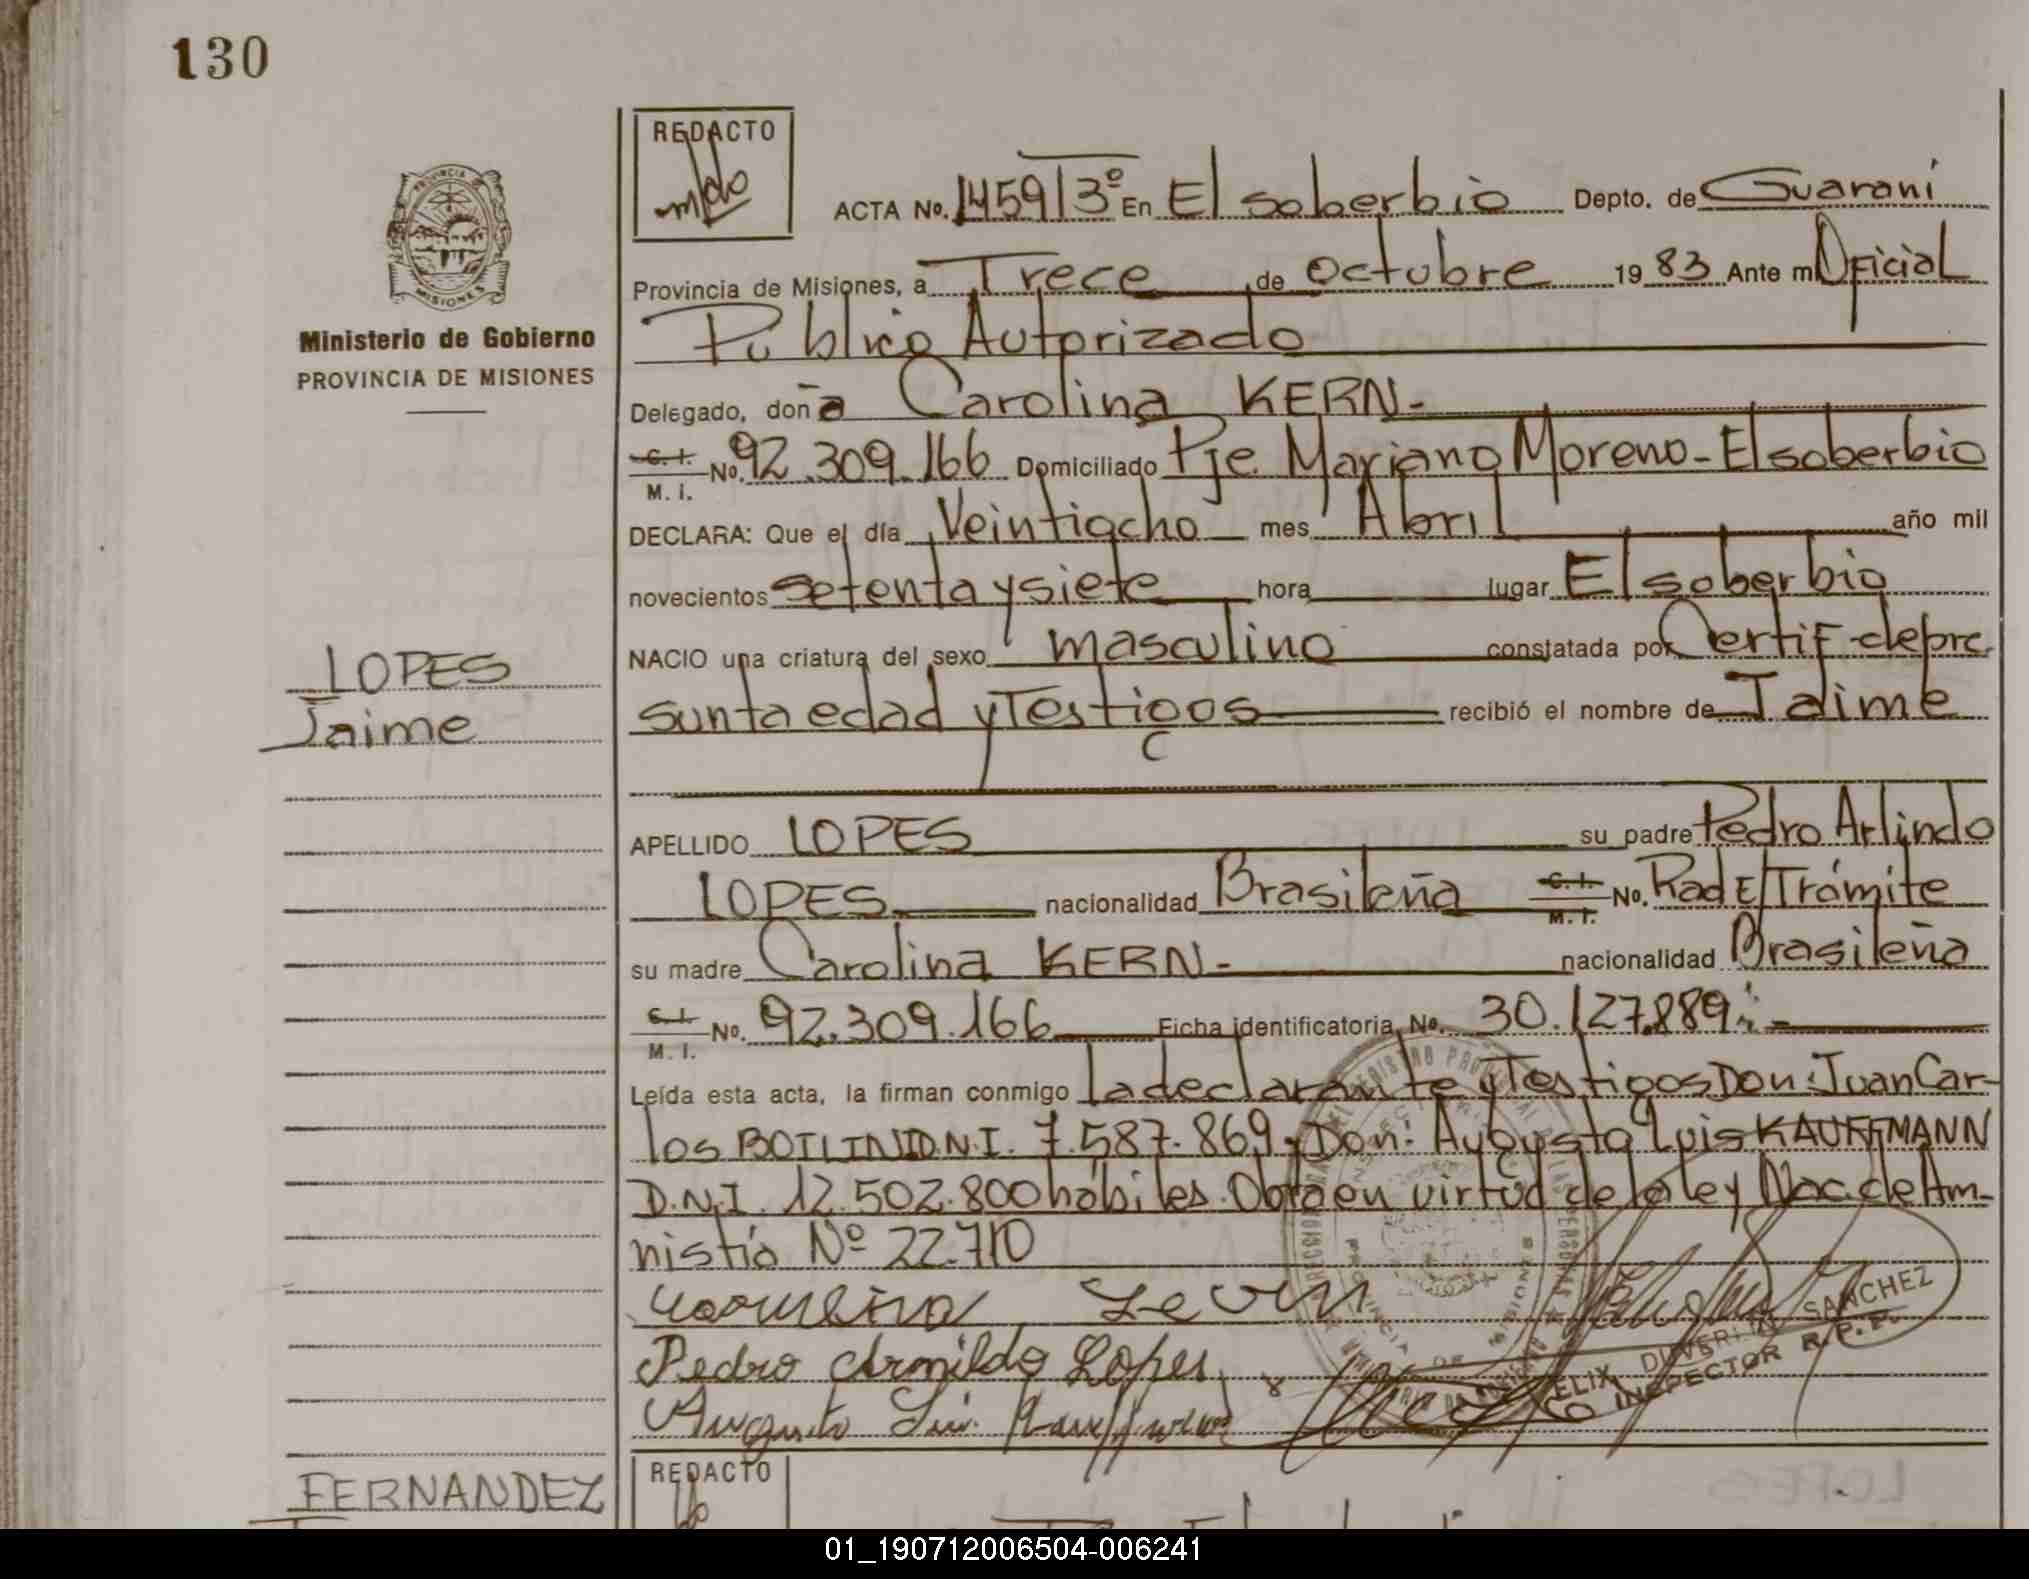 130
REDACTO
ACTA No. 1459/3º En El soberbio Depto. de Guaraní
Provincia de Misiones, a Trece de octubre 19 83 Ante mí Oficial
Público Autorizado
Ministerio de Gobierno
PROVINCIA DE MISIONES
Delegado, doña Carolina KERN-
C. I. M. I. No. 92.309.166 Domiciliado Pje. Mariano Moreno-El soberbio
DECLARA: Que el día Veintiocho mes Abril año mil
novecientos setenta y siete hora lugar El soberbio
NACIO una criatura del sexo masculino constatada por Certif-de pre
sunta edad y Testigos recibió el nombre de Jaime
LOPES
Jaime
APELLIDO LOPES su padre Pedro Arlindo
LOPES nacionalidad Brasileña C. I. M. I. No. Rad E/Trámite
su madre Carolina KERN- nacionalidad Brasileña
C. I. M. I. No. 92.309.166 Ficha identificatoria No. 30.127.889
Leída esta acta, la firman conmigo la declarante y Testigos Don: Juan Car-
los BOTLINI D.N.I. 7.587.869 y Don: Augusto Luis KAUFFMANN
D.N.I. 12.502.800 hábiles. Obra en virtud de la ley Nac. de Am-
nistía Nº 22.710
Pedro Armildo Lopes
SANCHEZ
INSPECTOR R.P.P.
FERNANDEZ
REDACTO
01_190712006504-006241